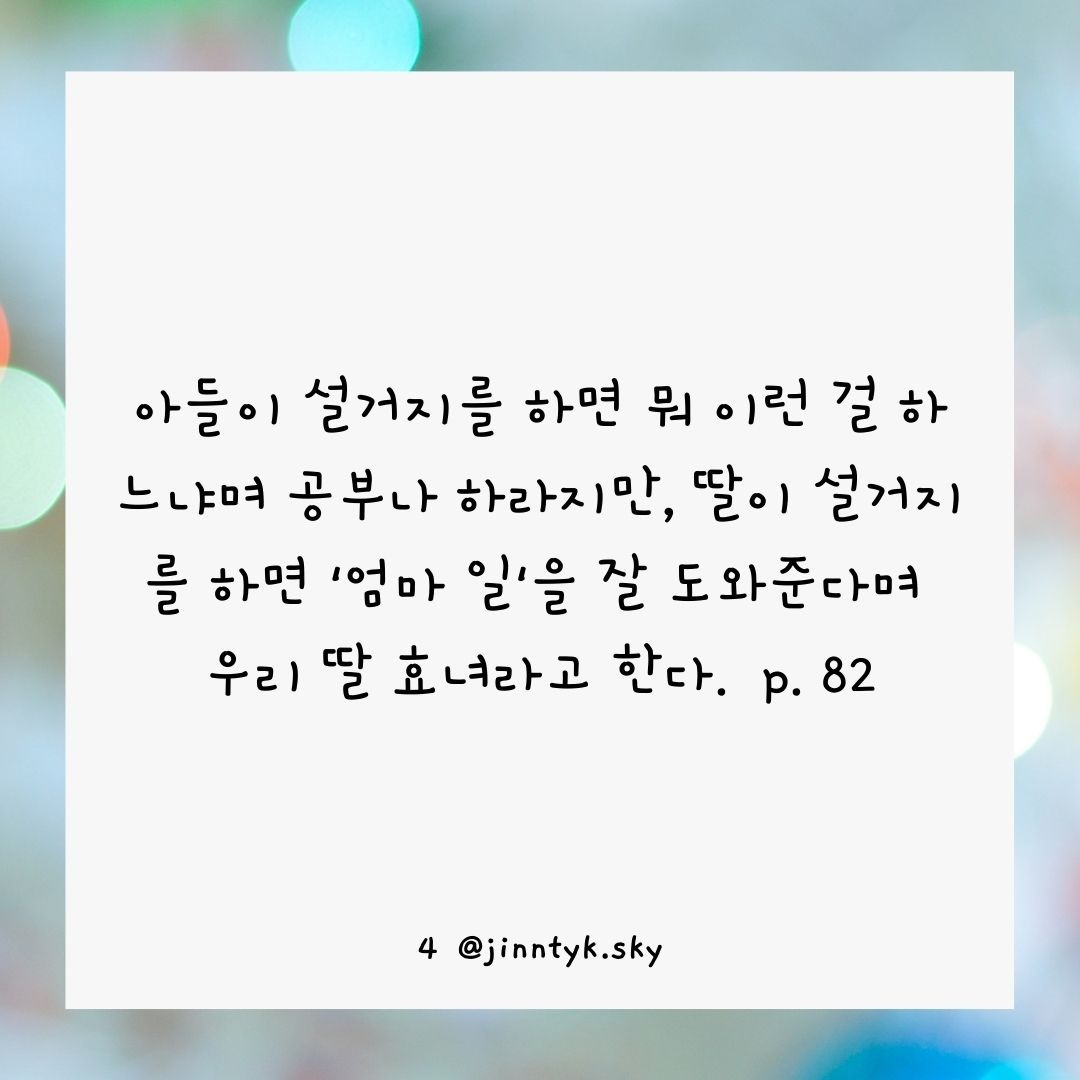 아들이 설거지를 하면 뭐 이런 걸 하
느냐며 공부나 하라지만, 딸이 설거지
를 하면 '엄마 일'을 잘 도와준다며
우리 딸 효녀라고 한다. p. 82
4 @jinntyk.sky